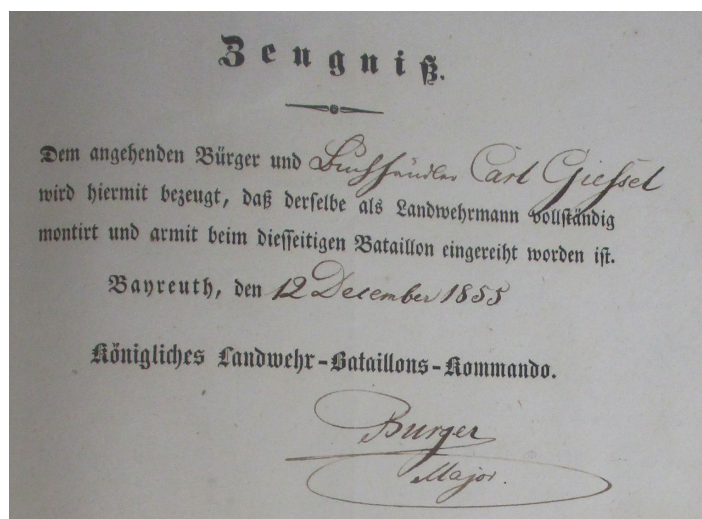 Zeugniß.
Dem angehenden Bürger und Buchhändler Carl Giessel
wird hiermit bezeugt, daß derselbe als Landwehrmann vollständig
montirt und armit beim diesseitigen Bataillon eingereiht worden ist.
Bayreuth, den 12 December 1855
Königliches Landwehr-Bataillons-Kommando.
Burger
Major.